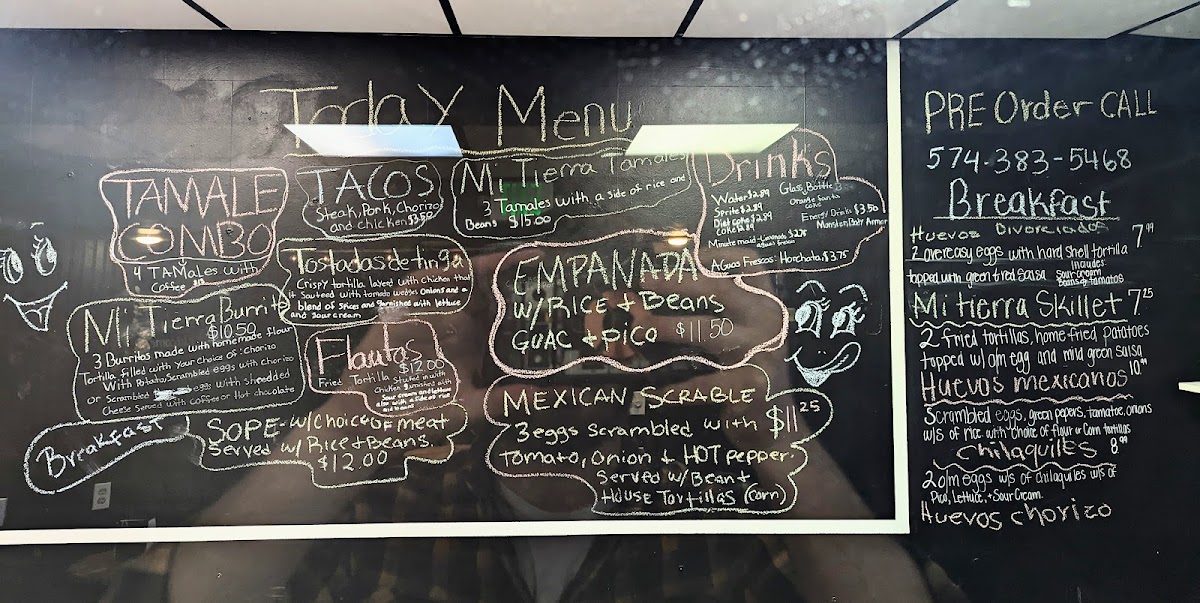 Today Menu
TAMALE
COMBO
4 TAMales with
Coffee
TACOS
Steak, Pork, Chorizo
and chicken $3.50
Mi Tierra Tamales
3 Tamales with a side of rice and
Beans $15.00
Drinks
Water $2.89
Sprite $2.89
Diet Coke $2.89
Coke $2.89
Minute maid-Limonada $2.75
Glass Bottle 3
Orange Fanta
Coke
Energy Drinks $3.50
Monster/Body Armor
Aguas Frescas: Horchata $3.75
Tostadas de tinga
Crispy tortilla layed with chicken that
it Sauteed with tomato wedges onions and a
blend of Spices and garnished with lettuce
and Sour cream
Mi Tierra Burrito
$10.50
3 Burritos made with homemade flour
Tortilla filled with your choice of: Chorizo
With Potato/Scrambled eggs with Chorizo
or Scrambled egg with shredded
Cheese Served with coffee or Hot chocolate
Flautas
$12.00
Fried Tortilla Stuffed in with
Chicken garnished with
Sour cream and lettuce
also with a side of rice
and beans
EMPANADA
w/RICE + Beans
GUAC + pico $11.50
Breakfast
SOPE- w/choice of meat
Served w/ Rice + Beans.
$12.00
MEXICAN SCRABLE
3 eggs scrambled with $11 25
Tomato, Onion + HOT pepper.
Served w/ Bean +
House Tortillas (corn)
PRE Order CALL
574-383-5468
Breakfast
Huevos Divorciados
2 overeasy eggs with hard shell tortilla 7.99
topped with green + red salsa
includes:
Sour cream
Beans + tamatos
Mi tierra Skillet 7.25
2 fried tortillas, home fried potatoes
topped w/ o/m egg and mild green salsa
Huevos mexicanos 10.99
Scrambled eggs, green pepers, tamatoe, onions
w/s of rice with choice of flour or Corn tortillas
Chilaquiles 8.99
2 o/m eggs w/s of chilaquiles w/s of
Pico, Lettuce, + Sour Cream
Huevos chorizo